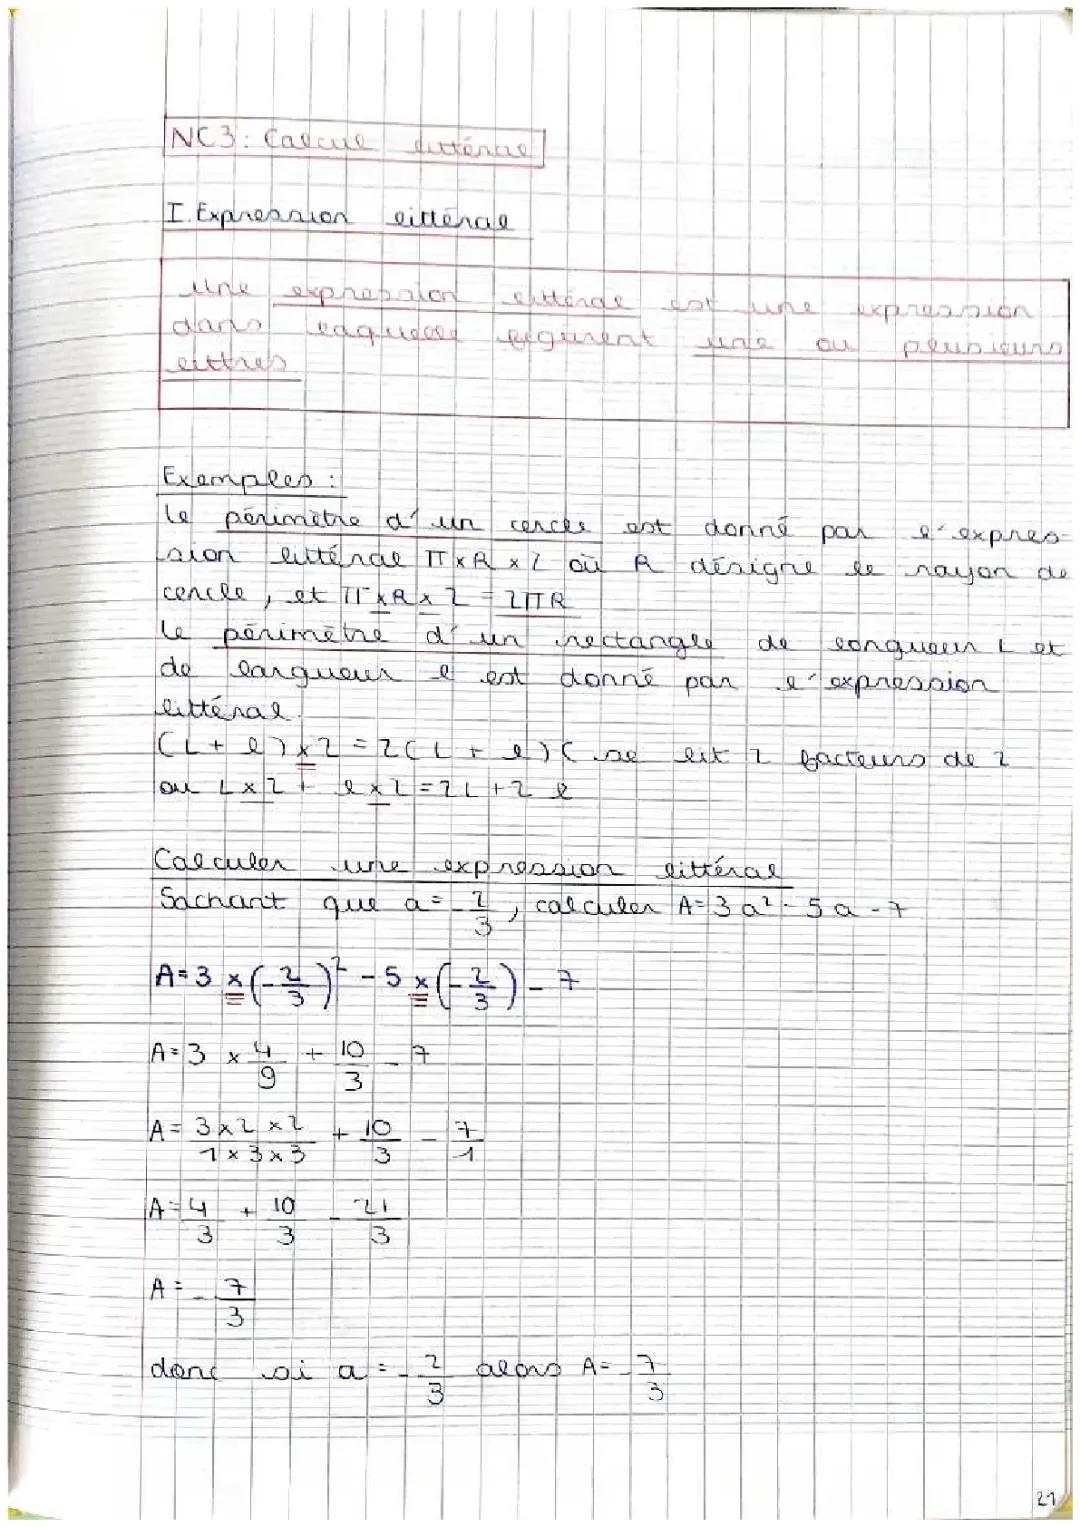 NC3: Calcul littéral
I. Expression littéral
Une expression littérale est une expression
dans laquelle figurent une ou plusieurs
lettres
Exemples :
le périmètre d'un cercle est donné par l'expres-
sion littéral π×R×2 où R désigne le rayon de
cercle, et π×R×2=2πR
le périmètre d'un rectangle de longueur L et
de largueur l est donné par l'expression
littéral.
(L+l)×2=2(L+l)( se lit 2 facteurs de 2
ou L×2+l×2=2L+2l
Calculer une expression littéral
Sachant que a=-2/3, calculer A=3a²-5a-7
A=3×(-2/3)²-5×(-2/3)-7
A=3×4/9+10/3-7
A=3×2×2/1×3×3+10/3-7/1
A=4/3+10/3-21/3
A=-7/3
donc si a=-2/3 alors A=-7/3
21